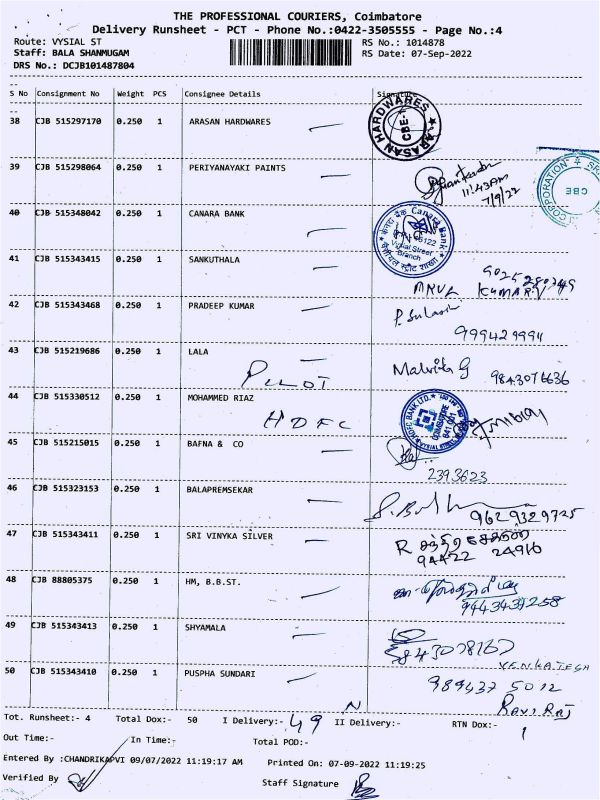 THE PROFESSIONAL COURIERS, Coimbatore
Delivery Runsheet - PCT - Phone No.:0422-3505555 - Page No.:4
Route: VYSIAL ST RS No.: 1014878
Staff: BALA SHANMUGAM RS Date: 07-Sep-2022
DRS No.: DCJB101487804
S No Consignment No Weight PCS Consignee Details Signature
38 CJB 515297170 0.250 1 ARASAN HARDWARES ARASAN HARDWARES CBE
39 CJB 515298064 0.250 1 PERIYANAYAKI PAINTS
11:43AM
7/9/22
CORPORATION CBE
40 CJB 515348042 0.250 1 CANARA BANK
केनरा बैंक Canara Bank
Vysial Street
Branch
41 CJB 515343415 0.250 1 SANKUTHALA
KUMAR V
42 CJB 515343468 0.250 1 PRADEEP KUMAR
999429994
43 CJB 515219686 0.250 1 LALA
9843076636
44 CJB 515330512 0.250 1 MOHAMMED RIAZ
HDFC
HDFC BANK LTD. COIMBATORE 641 001
45 CJB 515215015 0.250 1 BAFNA & CO
2393623
46 CJB 515323153 0.250 1 BALAPREMSEKAR
9629329725
47 CJB 515343411 0.250 1 SRI VINYKA SILVER
94422 24916
48 CJB 88805375 0.250 1 HM, B.B.ST.
49 CJB 515343413 0.250 1 SHYAMALA
VENKATESH
50 CJB 515343410 0.250 1 PUSPHA SUNDARI
989437 5012
Raviraj
Tot. Runsheet:- 4 Total Dox:- 50 I Delivery:- 49 II Delivery:- N RTN Dox:- 1
Out Time:- In Time:- Total POD:-
Entered By :CHANDRIKAPVI 09/07/2022 11:19:17 AM Printed On: 07-09-2022 11:19:25
Verified By Staff Signature